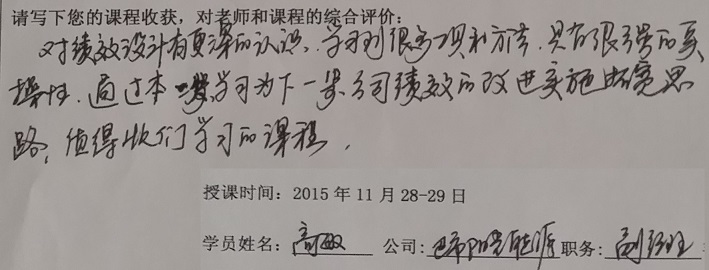 请写下您的课程收获，对老师和课程的综合评价：
对绩效设计有更深的认识，学习到很多工具和方法，具有很强的实
操性，通过本次学习为下一步公司绩效的改进实施拓宽思
路，值得我们学习的课程，
授课时间：2015年11月28-29日
学员姓名：高敏 公司： 职务：副经理